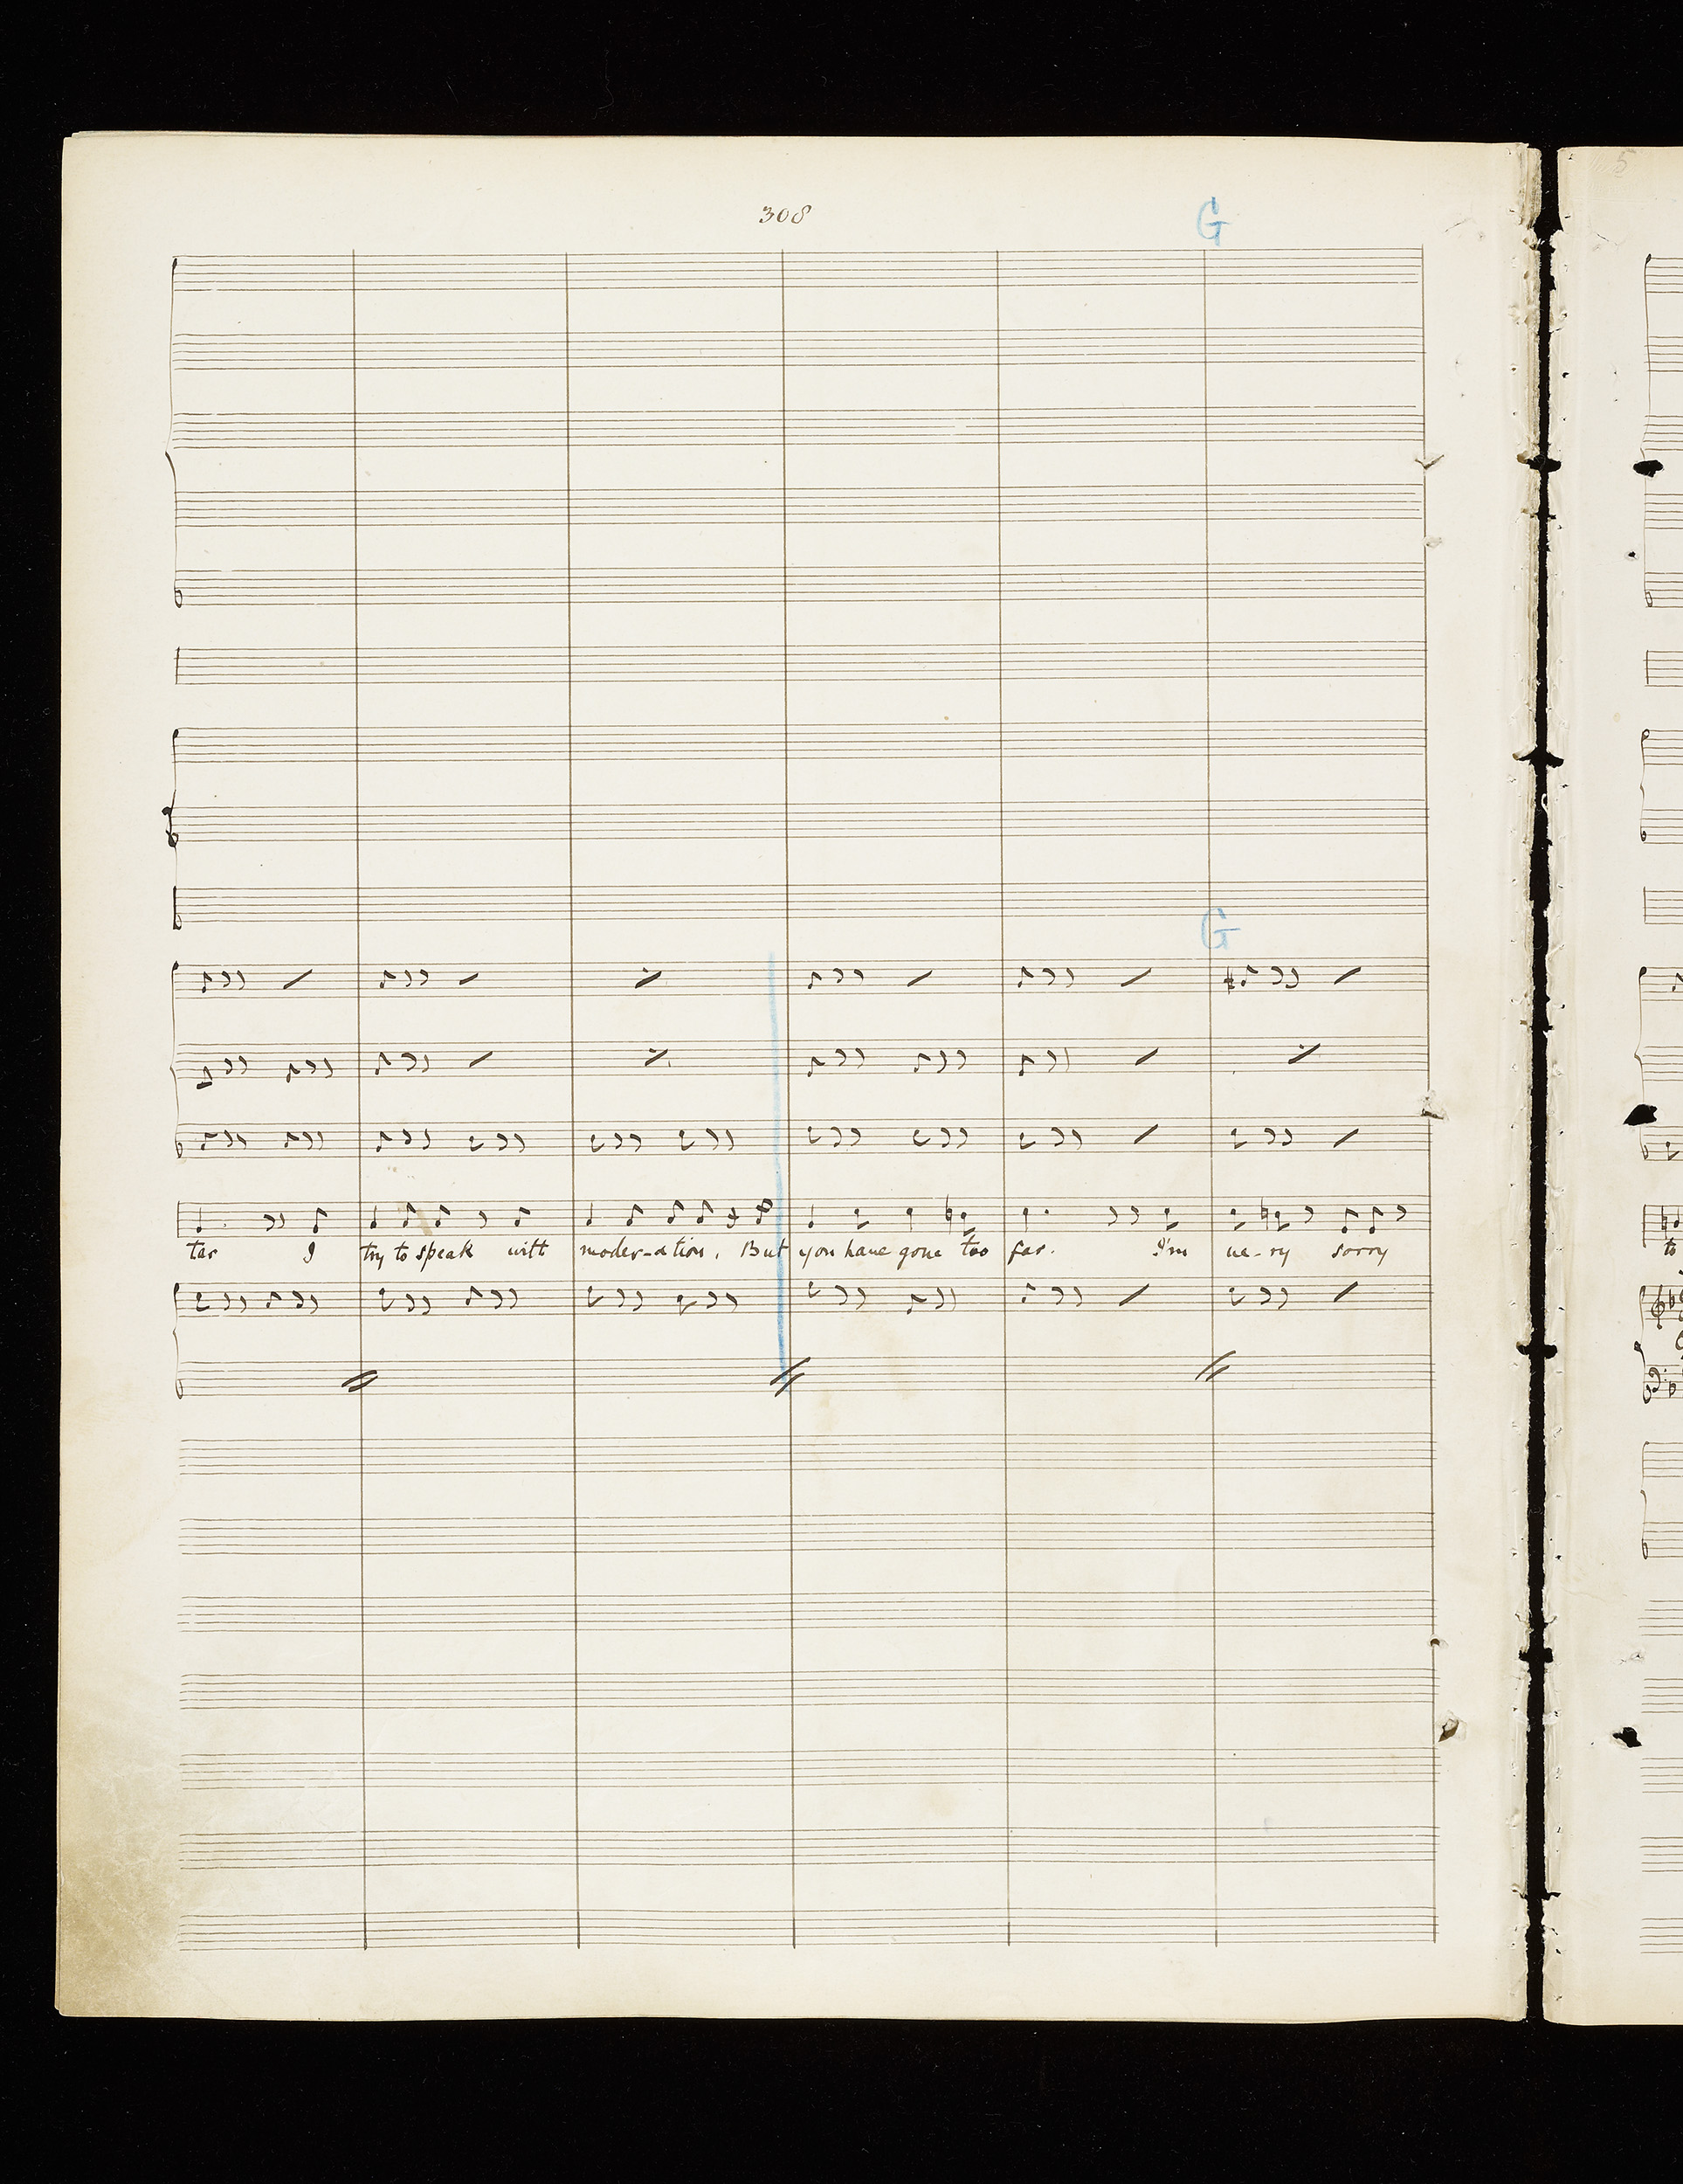 308
G
G
tar I try to speak with moder-ation, But you have gone too far. I'm ve-ry sorry
5
to